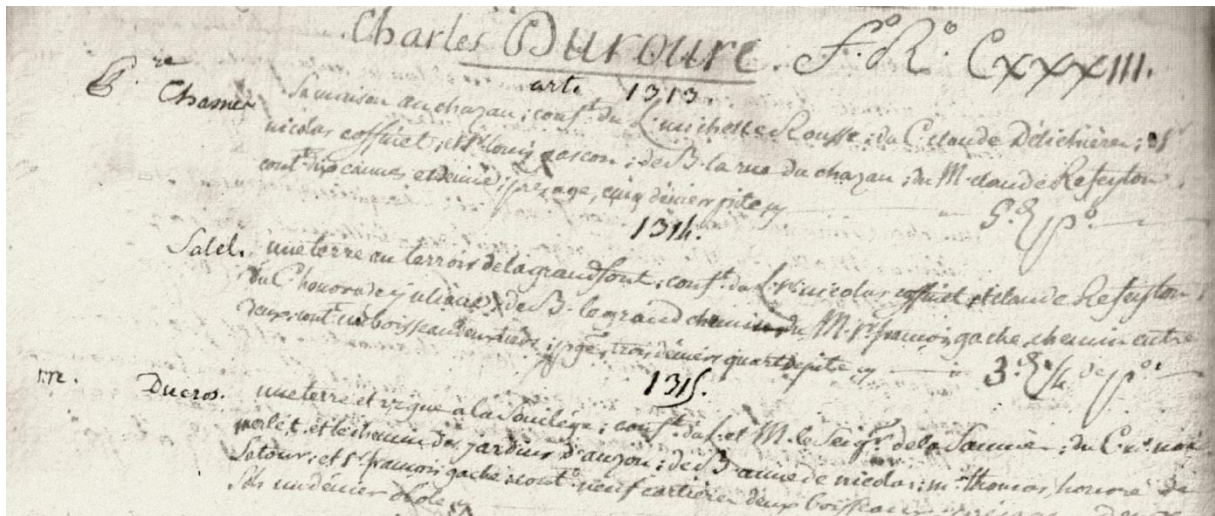 Charles Duroure. F.º R.º Cxxxiii.
art. 1313.
Chamer sa maison au chazau; conf.t du L. michelle Rousse; du C. claude Delichiere; et
nicolas coffinet; et s.r louis gascon; de B. la rue du chazau; du M. claude Refeyton
cont. dix cannes et demie; presage, cinq denier pite
5.d p.º
1314.
Salel. une terre au terroir de la grand font; conf.t du L. s.r nicolas coffinet et claude Refeyton
du C. honorade juliane; de B. le grand chemin du M. s.r francois gache, chemin entre
deux; cont. un boisseau deux tiers; pge, trois deniers quart de pite
3.d 1/4 de p.º
1315.
Ducros. une terre et vigne a la ; conf.t du L. et M. le Seig.r de la ; du C.
merle, et le chemin des jardins d'auzon; de B. anne de nicolas; m.e thomas, honoré de
Latour; et s.r francois gache; cont. neuf cartieres deux boisseaux
sols un denier obole